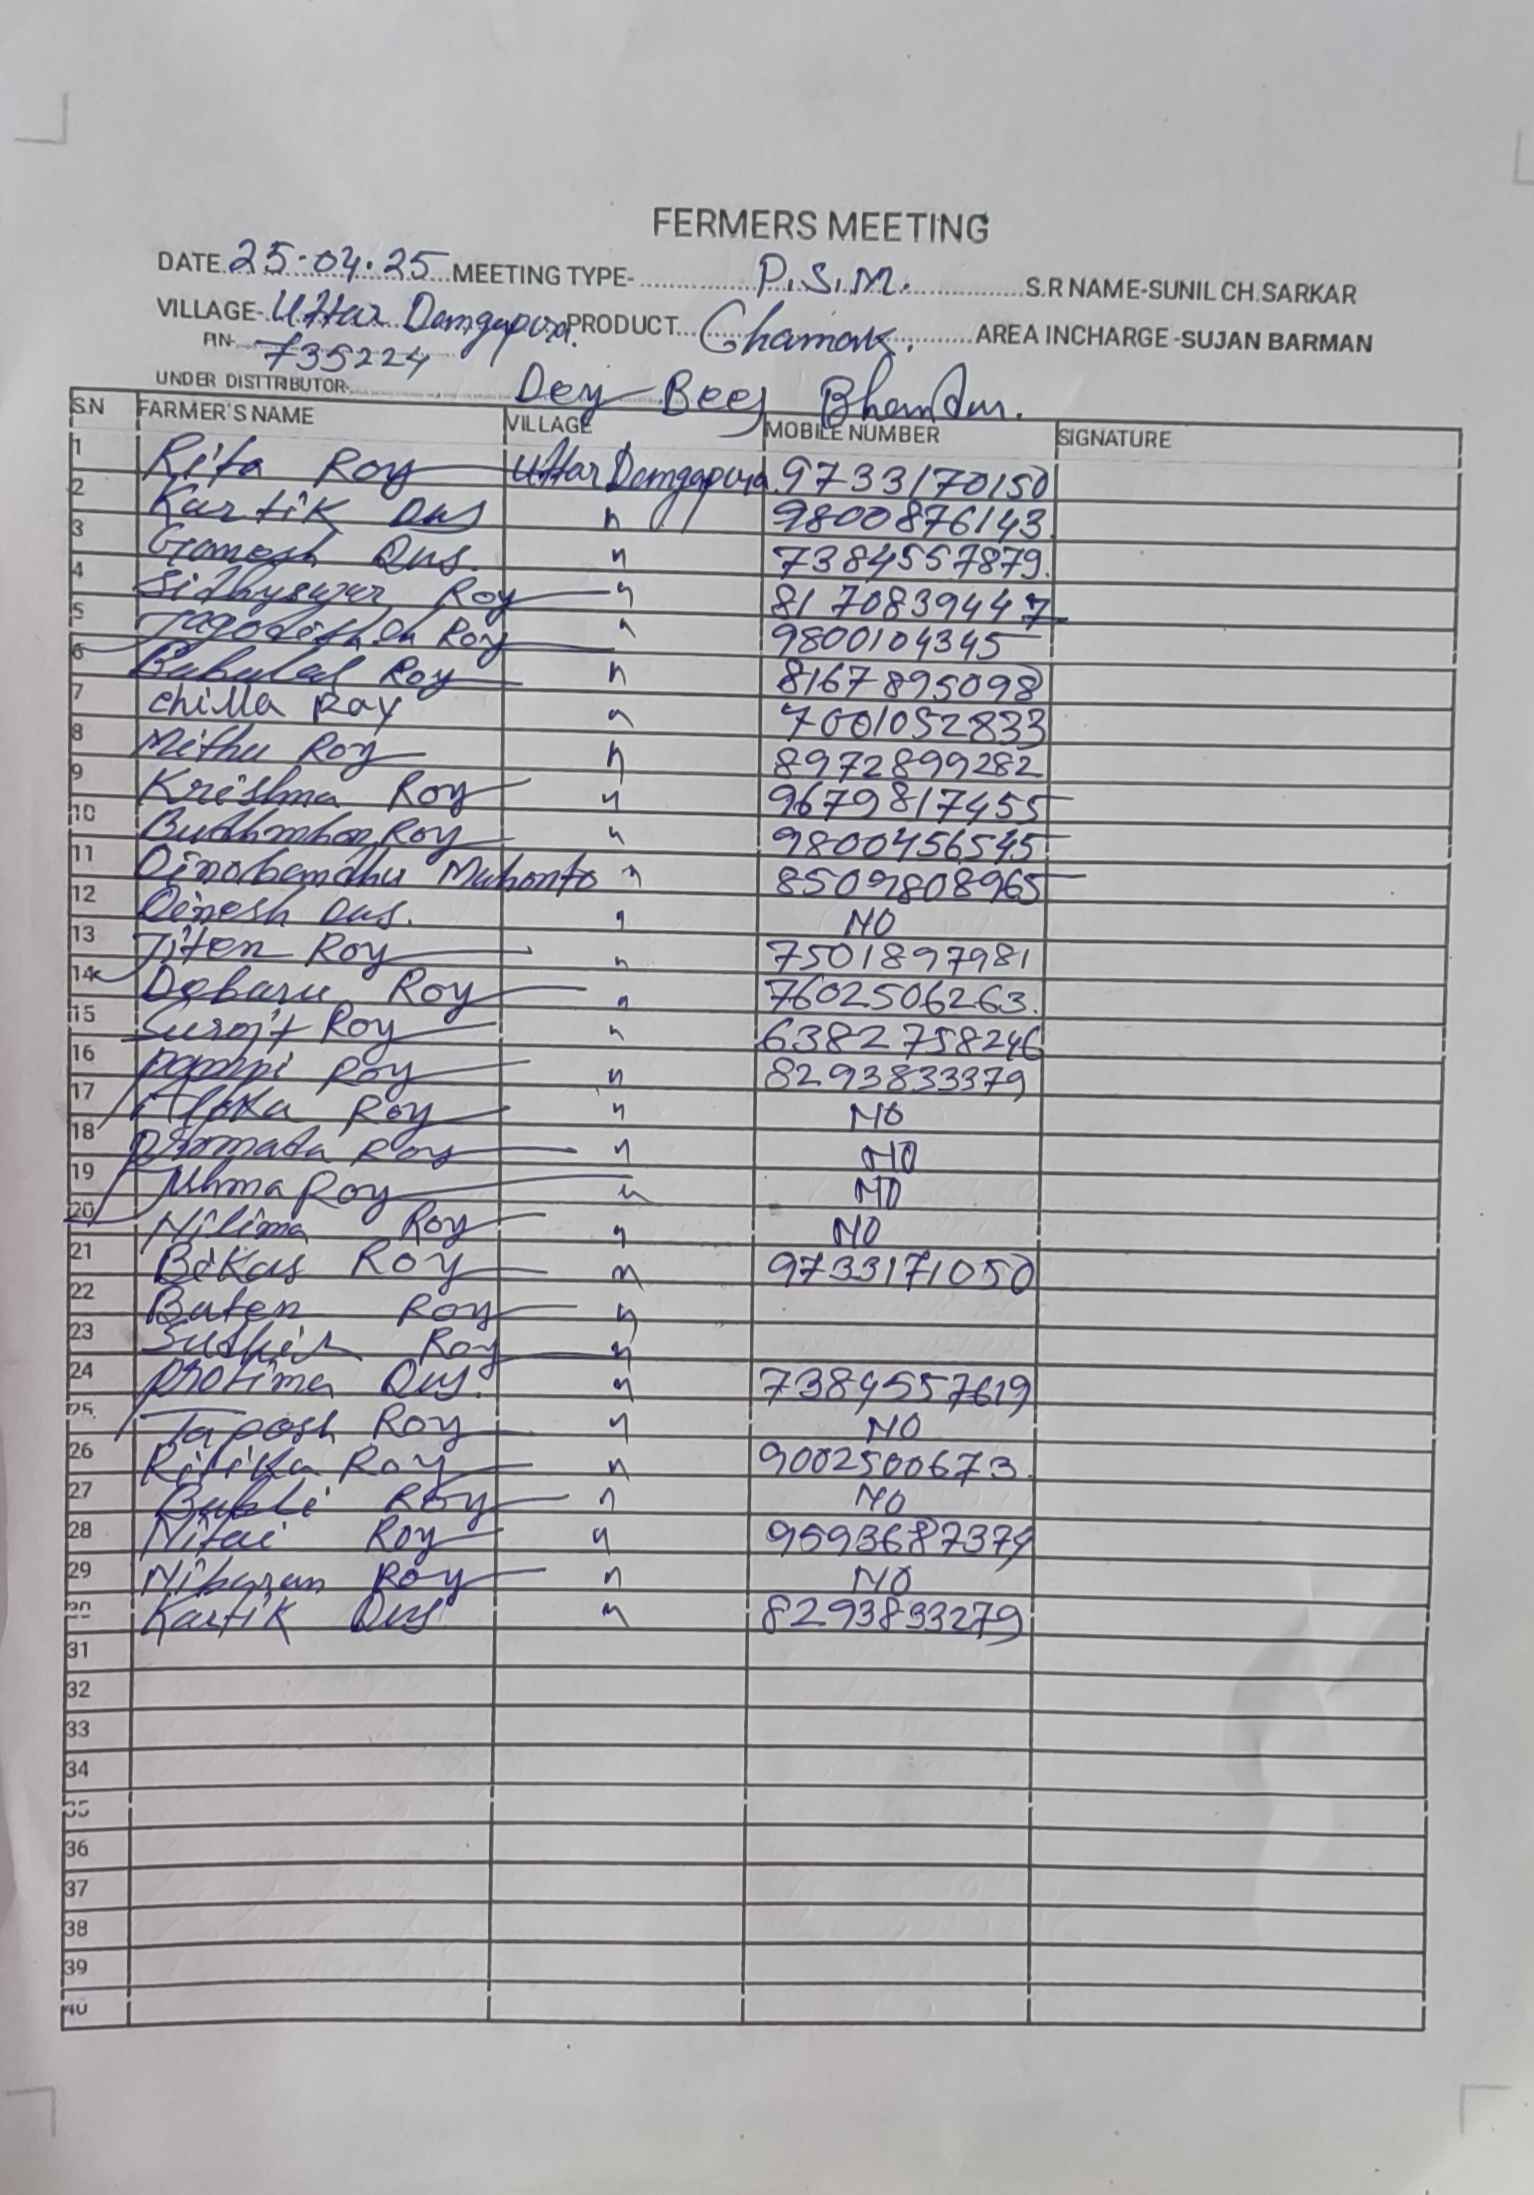 FERMERS MEETING
DATE 25-04.25 MEETING TYPE- P.S.M. S.R NAME-SUNIL CH.SARKAR
VILLAGE- Uttar Damgapura. PRODUCT Chamak. AREA INCHARGE -SUJAN BARMAN
PIN- 735224
UNDER DISTTRIBUTOR- Dey Beej Bhandar.
S.N FARMER'S NAME VILLAGE MOBILE NUMBER SIGNATURE
1 Rita Roy Uttar Damgapura 9733170150
2 Kartik Das " 9800876143
3 Ganesh Das. " 7384557879.
4 Sidhyswar Roy " 8170839447
5 Jagodish Ch Roy " 9800104345
6 Babulal Roy " 8167895098
7 chilla Ray " 7001052833
8 Mithu Roy " 8972899282
9 Krishna Roy " 9679817455
10 Roy " 9800456545
11 Dinobandhu Mahonto " 8509808965
12 Dinesh Das. " NO
13 Jiten Roy " 7501897981
14 Debaru Roy " 7602506263.
15 Surojit Roy " 6382758246
16 Pampi Roy " 8293833379
17 Alpka Roy " NO
18 Promada Roy " NO
19 Uhma Roy " NO
20 Nilima Roy " NO
21 Bikas Roy " 9733171050
22 Baten Roy "
23 Sudhir Roy "
24 Protima Das. " 7384557619
25 Taposh Roy " NO
26 Ritika Roy " 9002500673.
27 Bubli Roy " NO
28 Nitai Roy " 9593687379
29 Nibaran Roy " NO
30 Kartik Das " 8293833279
31
32
33
34
35
36
37
38
39
40